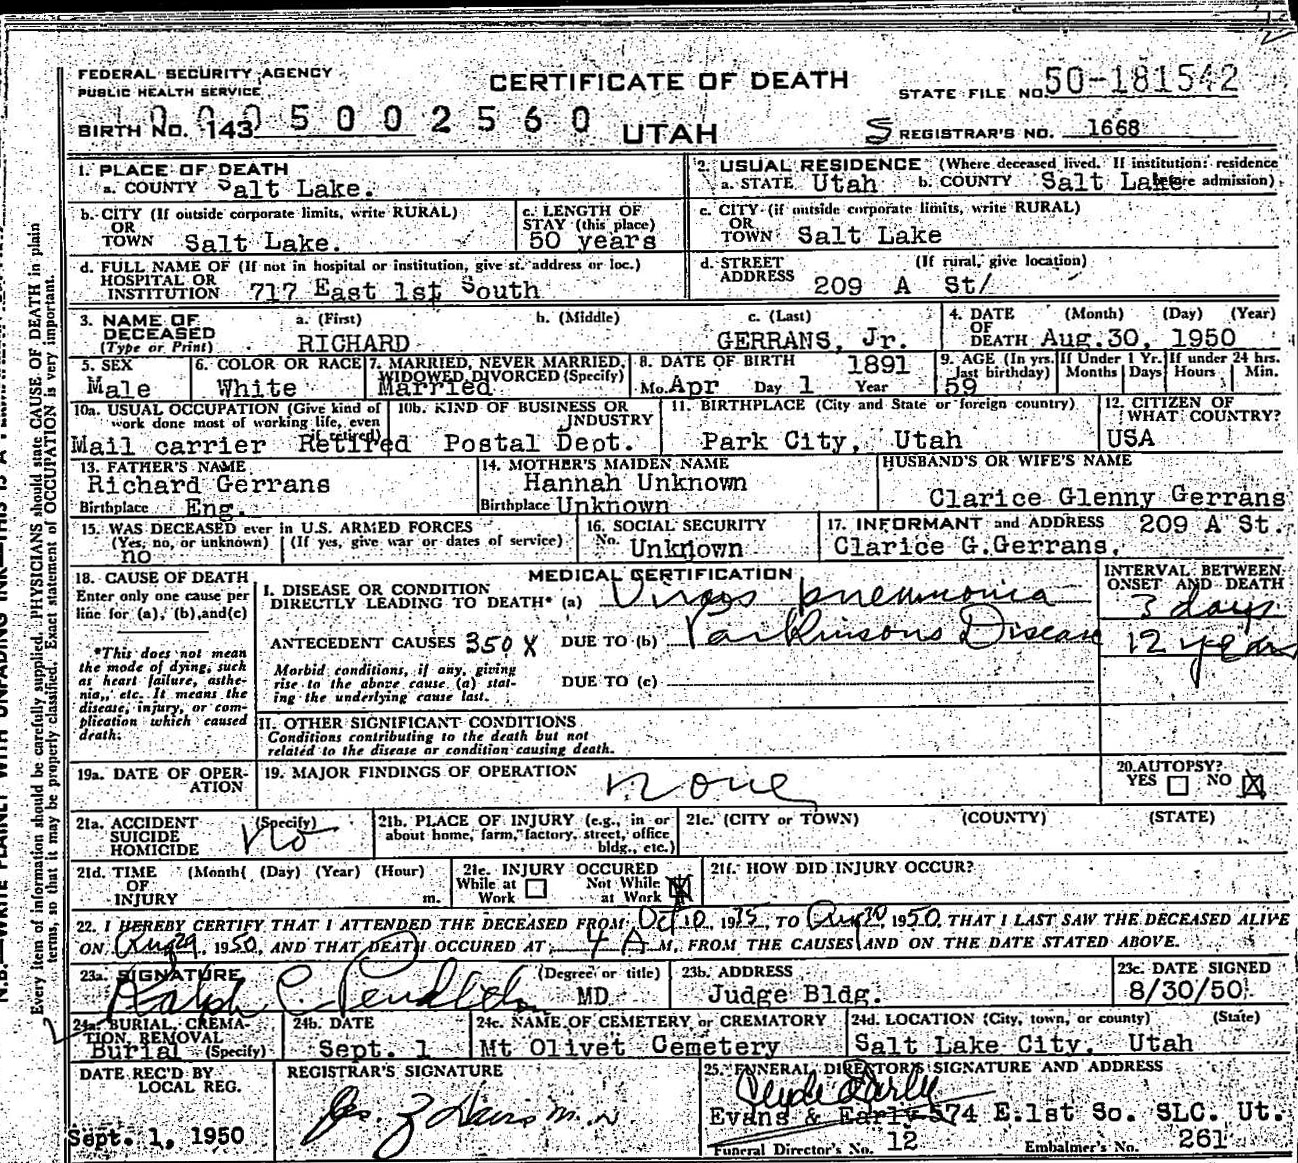 FEDERAL SECURITY AGENCY
PUBLIC HEALTH SERVICE
CERTIFICATE OF DEATH
STATE FILE NO. 50-181542
BIRTH NO. 143
0005002560
UTAH
S REGISTRAR'S NO. 1668
1. PLACE OF DEATH
a. COUNTY Salt Lake.
2. USUAL RESIDENCE (Where deceased lived. If institution: residence before admission).
a. STATE Utah b. COUNTY Salt Lake
b. CITY (If outside corporate limits, write RURAL)
OR
TOWN Salt Lake.
c. LENGTH OF
STAY (this place)
50 years
c. CITY (if outside corporate limits, write RURAL)
OR
TOWN Salt Lake
d. FULL NAME OF (If not in hospital or institution, give st. address or loc.)
HOSPITAL OR
INSTITUTION 717 East 1st South
d. STREET (If rural, give location)
ADDRESS 209 A St/
3. NAME OF
DECEASED
(Type or Print)
a. (First) b. (Middle) c. (Last)
RICHARD GERRANS, Jr.
4. DATE (Month) (Day) (Year)
OF
DEATH Aug.30, 1950
5. SEX
Male
6. COLOR OR RACE
White
7. MARRIED, NEVER MARRIED,
WIDOWED, DIVORCED (Specify)
Married
8. DATE OF BIRTH 1891
Mo. Apr Day 1 Year
9. AGE (In yrs. last birthday)
59
If Under 1 Yr.
Months Days
If under 24 hrs.
Hours Min.
10a. USUAL OCCUPATION (Give kind of
work done most of working life, even
if retired)
Mail carrier Retired
10b. KIND OF BUSINESS OR
INDUSTRY
Postal Dept.
11. BIRTHPLACE (City and State or foreign country)
Park City, Utah
12. CITIZEN OF
WHAT COUNTRY?
USA
13. FATHER'S NAME
Richard Gerrans
Birthplace Eng.
14. MOTHER'S MAIDEN NAME
Hannah Unknown
Birthplace Unknown
HUSBAND'S OR WIFE'S NAME
Clarice Glenny Gerrans
15. WAS DECEASED ever in U.S. ARMED FORCES
(Yes, no, or unknown) (If yes, give war or dates of service)
no
16. SOCIAL SECURITY
No. Unknown
17. INFORMANT and ADDRESS 209 A St.
Clarice G.Gerrans,
18. CAUSE OF DEATH
Enter only one cause per
line for (a), (b), and (c)
*This does not mean
the mode of dying, such
as heart failure, asthe-
nia, etc. It means the
disease, injury, or com-
plication which caused
death.
MEDICAL CERTIFICATION
I. DISEASE OR CONDITION
DIRECTLY LEADING TO DEATH* (a) Virus pneumonia
ANTECEDENT CAUSES 350X DUE TO (b) Parkinsons Disease
Morbid conditions, if any, giving
rise to the above cause (a) stat-
ing the underlying cause last.
DUE TO (c)
INTERVAL BETWEEN
ONSET AND DEATH
3 days
12 years
II. OTHER SIGNIFICANT CONDITIONS
Conditions contributing to the death but not
related to the disease or condition causing death.
19a. DATE OF OPER-
ATION
19. MAJOR FINDINGS OF OPERATION
none
20. AUTOPSY?
YES NO
21a. ACCIDENT (Specify)
SUICIDE
HOMICIDE
No
21b. PLACE OF INJURY (e.g., in or
about home, farm, factory, street, office
bldg., etc.)
21c. (CITY or TOWN) (COUNTY) (STATE)
21d. TIME (Month) (Day) (Year) (Hour)
OF
INJURY m.
21e. INJURY OCCURED
While at Work Not While at Work
21f. HOW DID INJURY OCCUR?
22. I HEREBY CERTIFY THAT I ATTENDED THE DECEASED FROM Oct 10, 1935, TO Aug 30, 1950, THAT I LAST SAW THE DECEASED ALIVE
ON Aug 29, 1950, AND THAT DEATH OCCURED AT 4 A M, FROM THE CAUSES AND ON THE DATE STATED ABOVE.
23a. SIGNATURE (Degree or title)
Ralph C. Pendleton MD
23b. ADDRESS
Judge Bldg.
23c. DATE SIGNED
8/30/50
24a. BURIAL, CREMA-
TION, REMOVAL
Burial (Specify)
24b. DATE
Sept. 1
24c. NAME OF CEMETERY or CREMATORY
Mt Olivet Cemetery
24d. LOCATION (City, town, or county) (State)
Salt Lake City, Utah
DATE REC'D BY
LOCAL REG.
Sept. 1, 1950
REGISTRAR'S SIGNATURE
25. FUNERAL DIRECTOR'S SIGNATURE AND ADDRESS
Clyde Early
Evans & Early 574 E.1st So. SLC. Ut.
Funeral Director's No. 12 Embalmer's No. 261
Every item of information should be carefully supplied. PHYSICIANS should state CAUSE OF DEATH in plain
terms, so that it may be properly classified. Exact statement of OCCUPATION is very important.